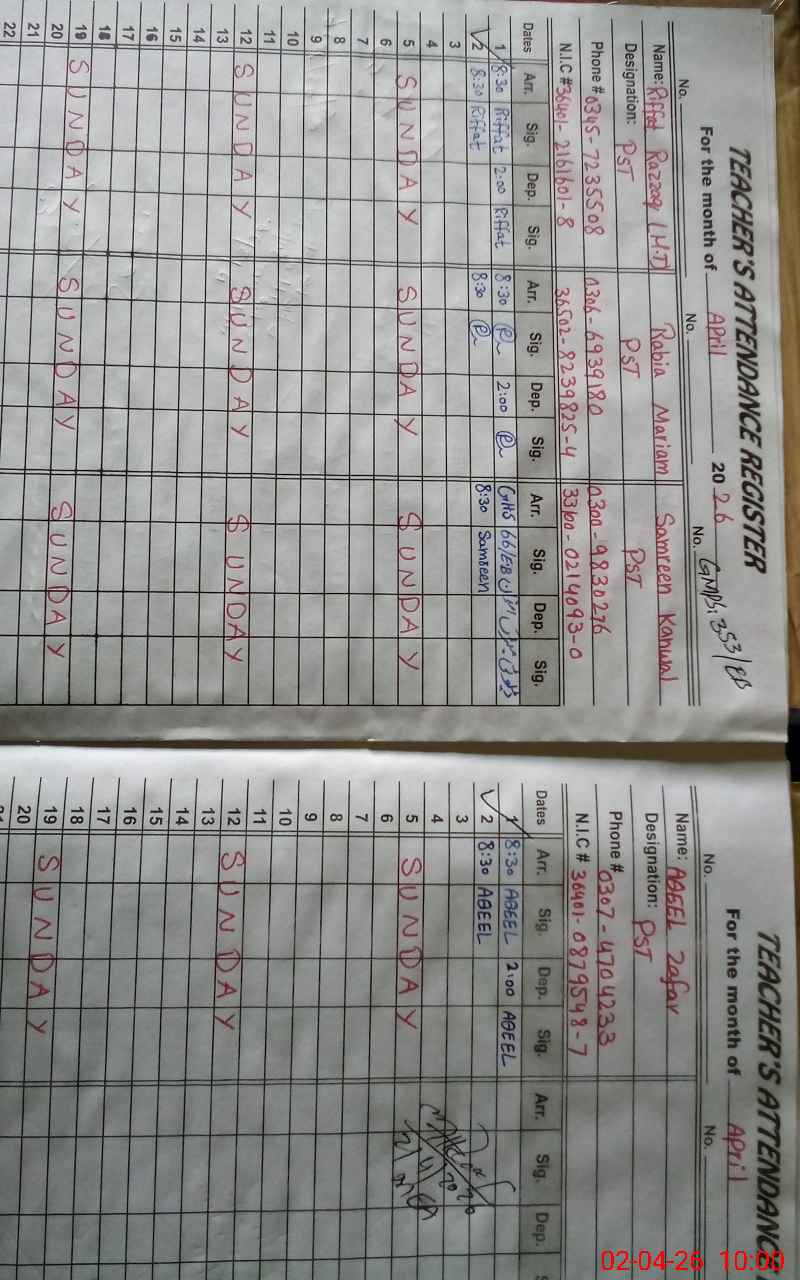 TEACHER'S ATTENDANCE REGISTER
For the month of April 2026
No. No. No. GMPS: 353/EB
Name: Riffat Razzaq (H.T) Rabia Mariam Samreen Kanwal
Designation: PST PST PST
Phone # 0345-7235508 0306-6939180 0300-9830276
N.I.C # 36401-2161601-8 36502-8239825-4 33100-0214093-0
Dates Arr. Sig. Dep. Sig. Arr. Sig. Dep. Sig. Arr. Sig. Dep. Sig.
1 8:30 Riffat 2:00 Riffat 8:30 2:00 GHS 66/EB
2 8:30 Riffat 8:30 8:30 Samreen
3
4
5 SUNDAY SUNDAY SUNDAY
6
7
8
9
10
11
12 SUNDAY SUNDAY SUNDAY
13
14
15
16
17
18
19 SUNDAY SUNDAY SUNDAY
20
21
22
TEACHER'S ATTENDANCE
For the month of April
No. No.
Name: AQEEL Zafar
Designation: PST
Phone # 0307-4704233
N.I.C # 36401-0879548-7
Dates Arr. Sig. Dep. Sig. Arr. Sig. Dep. S
1 8:30 AQEEL 2:00 AQEEL
2 8:30 AQEEL
3
4
5 SUNDAY
6
7
8
9
10
11
12 SUNDAY
13
14
15
16
17
18
19 SUNDAY
20
21
02-04-26 10:00